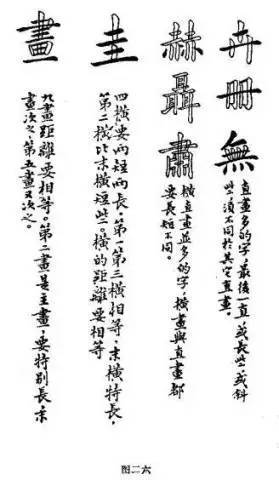 卉冊無
直畫多的字，最後一直或長些，或斜
些，須不同於其它直畫。
赫聶肅
橫直畫並多的字，橫畫與直畫都
要長短不同。
圭
四橫要由短而長，第一第三橫相等，末橫特長，
第二橫比末橫短些。橫的距離要相等
畫
九畫距離要相等。第二畫是主畫，要特別長，末
畫次之，第五畫又次之。
图二六